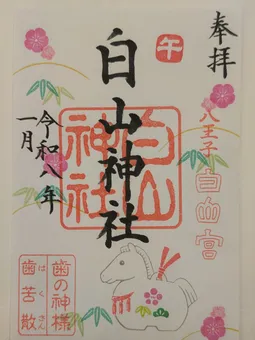 奉拝
八王子
白山宮
午
白山神社
白山
神社
令和八年
一月
歯の神様
歯苦散
はくさん